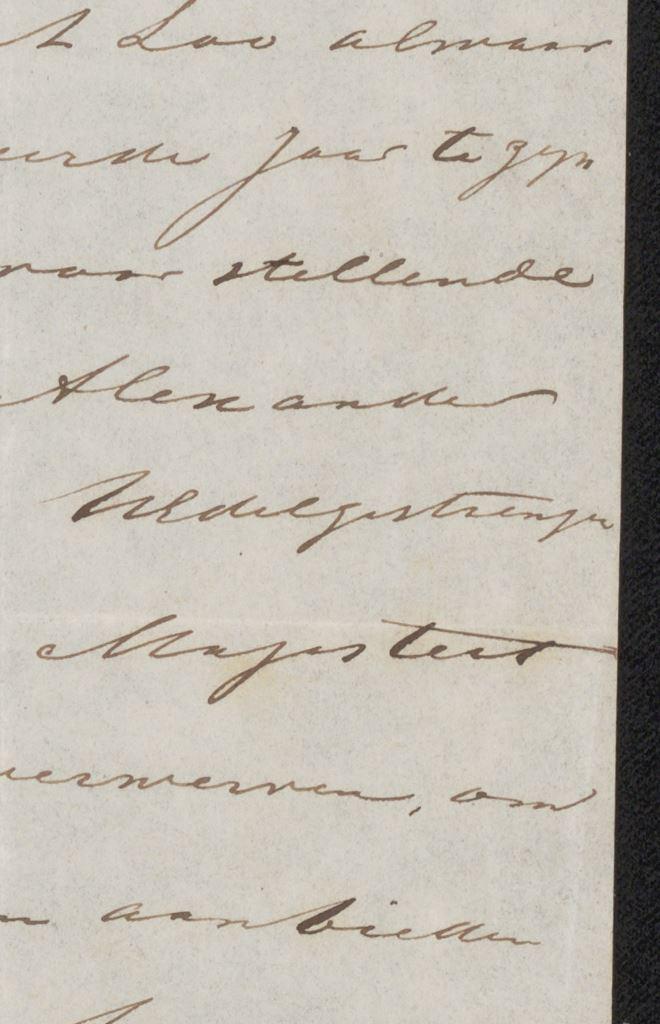 't Loo alwaar
Jaar te zyn
stellende
Alexander
UEdelgestrenge
Majesteit
verwerven, om
aanbieden